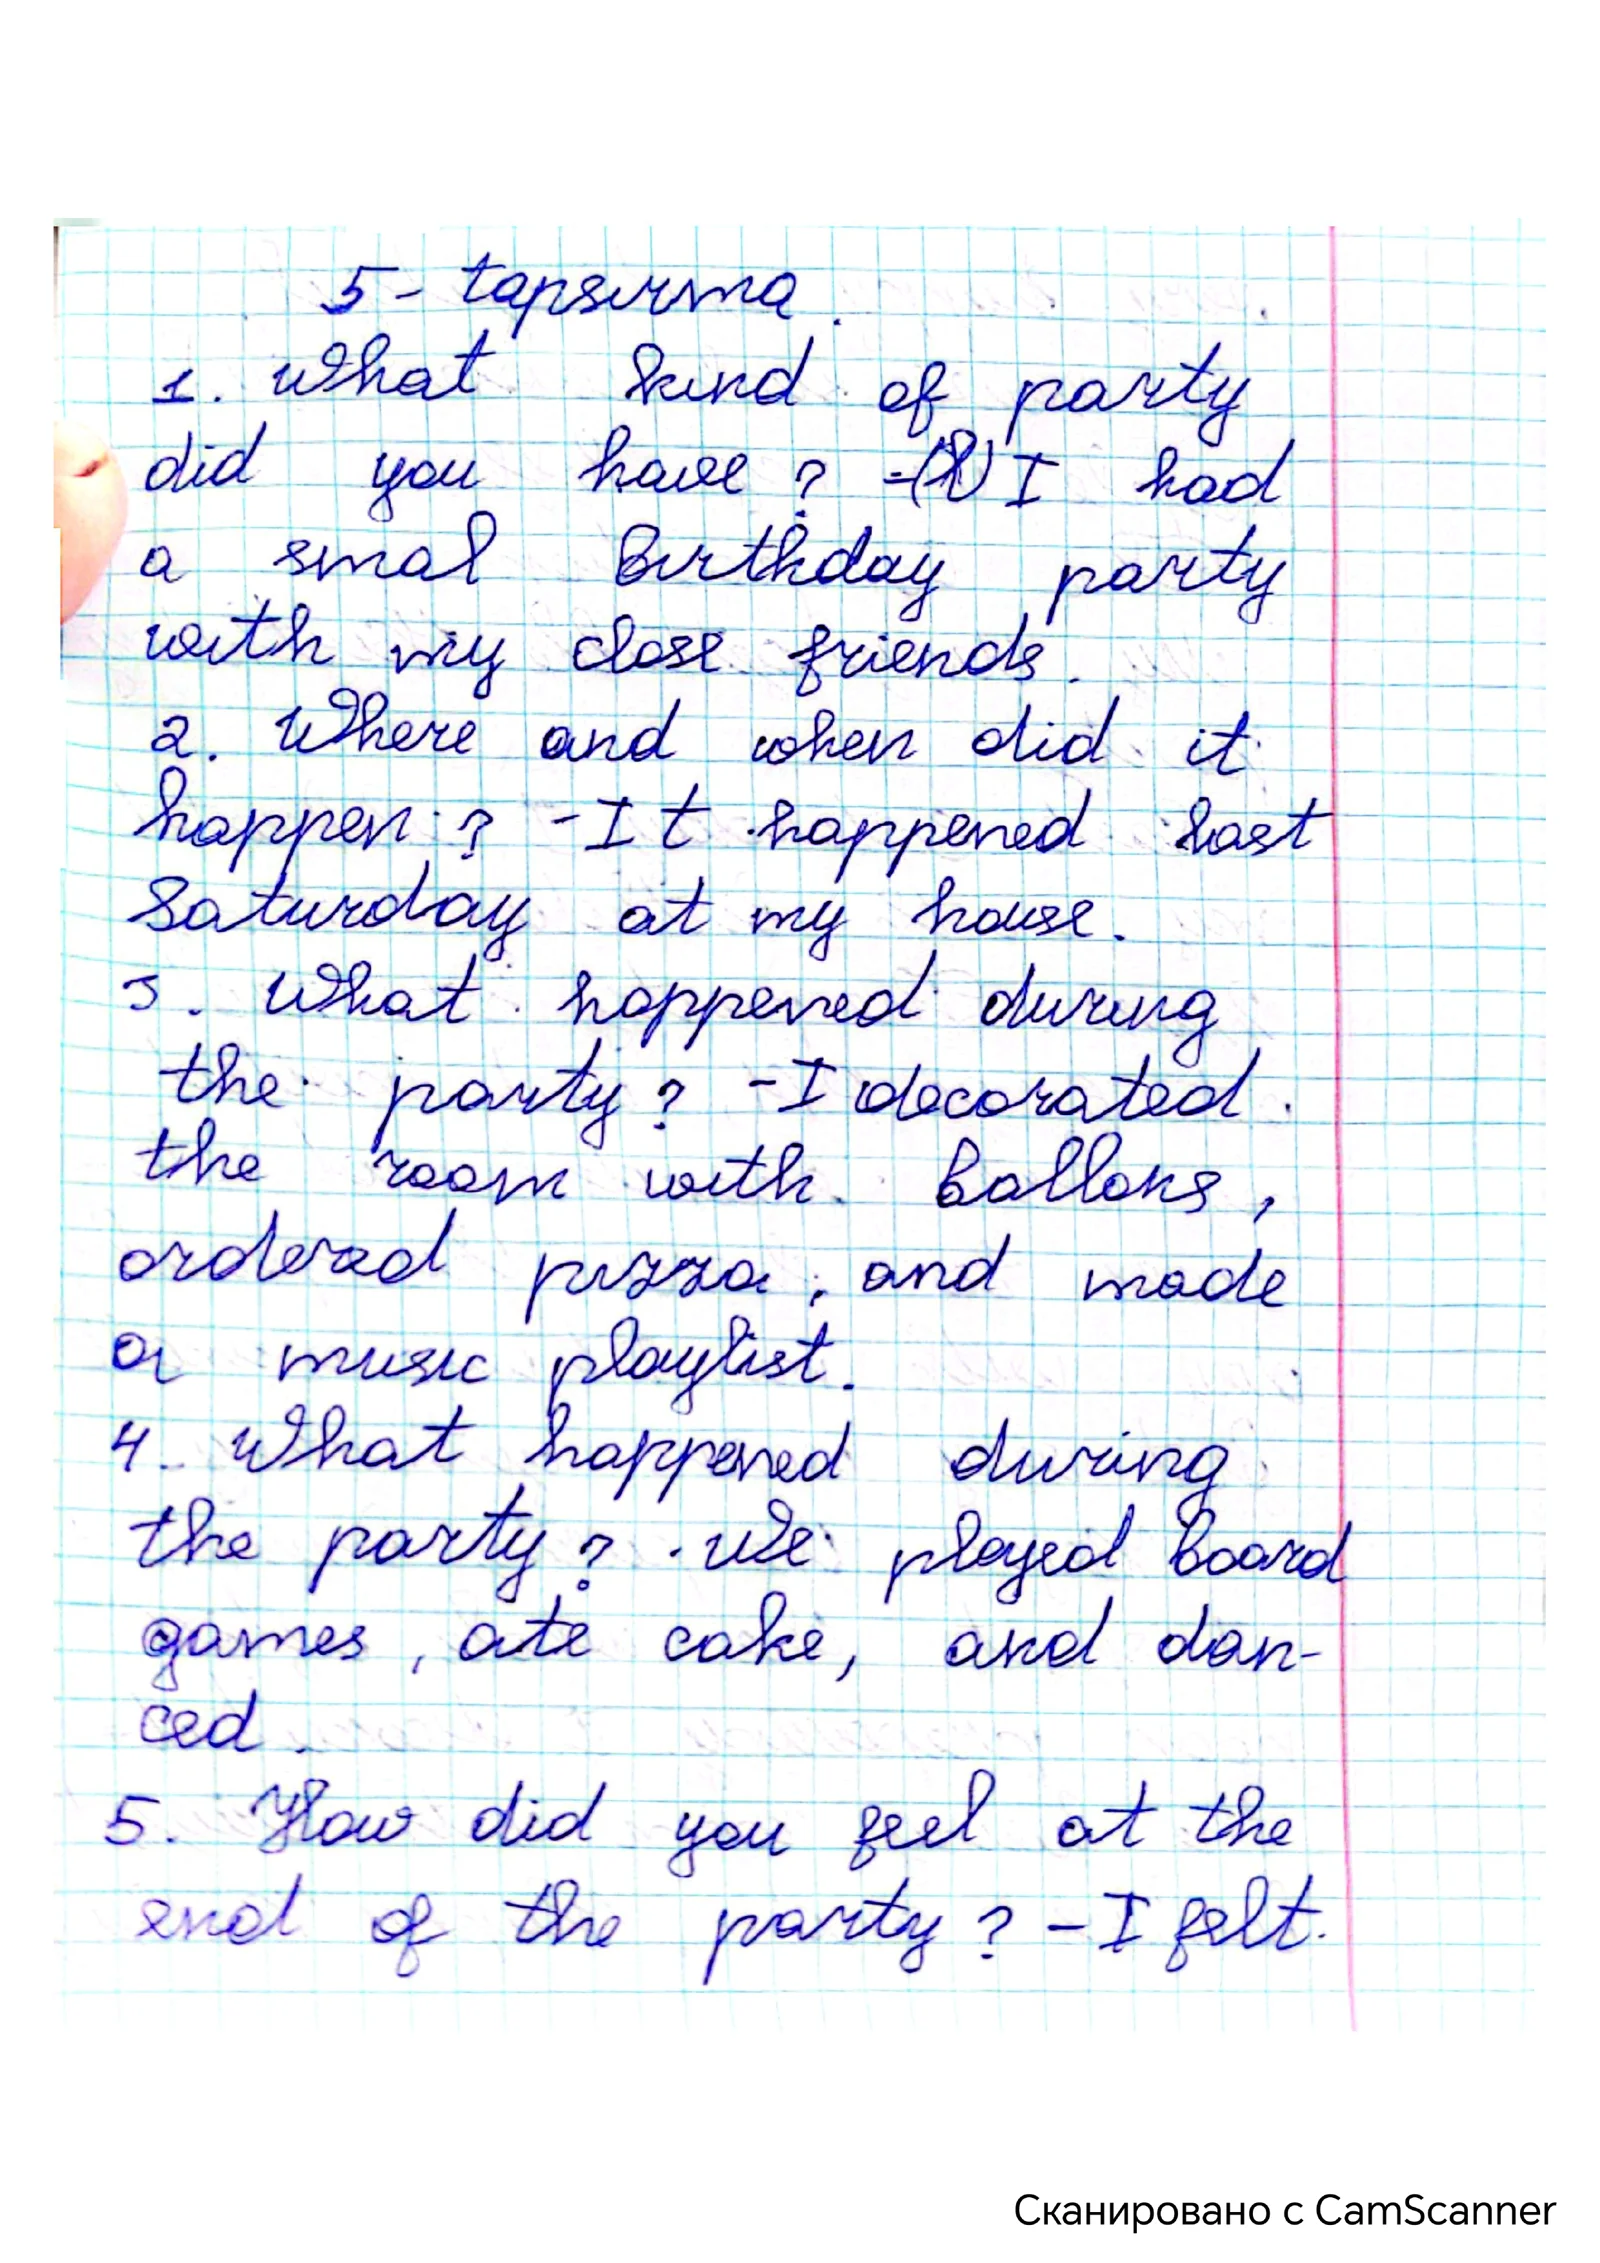 5 - tapsırma.
1. What kind of party
did you have? - I had
a smal birthday party
with my close friends.
2. Where and when did it
happen? - It happened last
Saturday at my house.
3. What happened during
the party? - I decorated
the room with ballons,
ordered pizza, and made
a music playlist.
4. What happened during
the party? We played board
games, ate cake, and dan-
ced.
5. How did you feel at the
end of the party? - I felt.
Сканировано с CamScanner